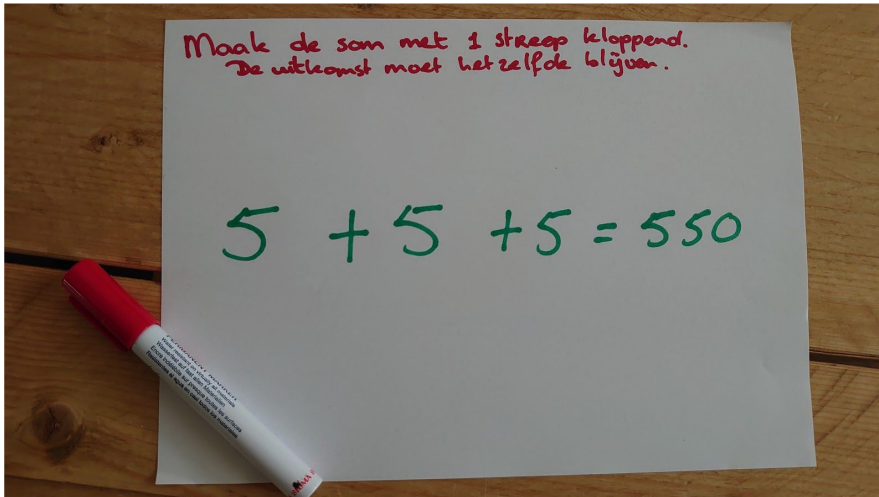 Maak de som met 1 streep kloppend.
De uitkomst moet het zelfde blijven.
5 + 5 + 5 = 550